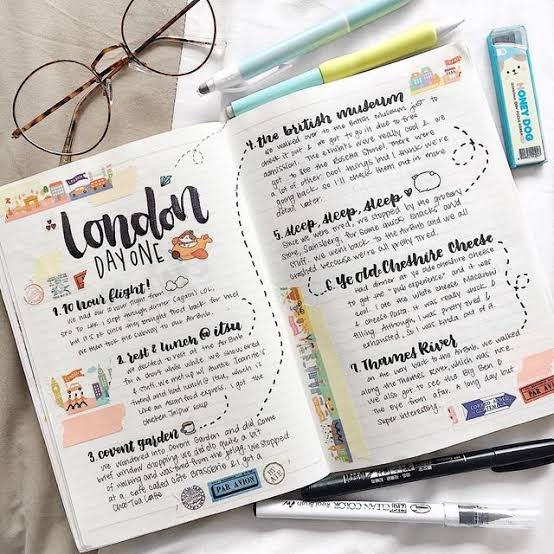 london
DAY ONE
1. 10 hour flight!
we had our 10 hour flight from
SFO to LHR. I slept through dinner (again) LOL,
but it's ok since they brought food back for me!
We then took the subway to our AirBnb.
2. rest & lunch @ itsu
we decided to rest at the AirBnb
for a short while while we showered
& stuff. We met up w/ Auntie Jeannie's
friend and had lunch @ itsu, which is
like an asian food express. I got the
chicken
soup
3. covent garden
we wandered into Covent Garden and did some
brief window shopping. We did do quite a bit
of walking and was tired from the jetlag. We stopped
at a cafe called Cote Brasserie & I got a
Chai Tea Latte
PAR AVION
4. the british museum
we walked over to the British Museum just to
check it out & we got to go in due to free
admission. The exhibits were really cool & we
got to see the Rosetta Stone! There were
a lot of other cool things but I think we're
going back, so I'll check them out in more
detail later.
5. sleep, sleep, sleep
Since we were tired, we stopped by the grocery
store, Sainsbury, for some quick snacks and
stuff. We went back to the AirBnb and we all
crashed because we're all pretty tired.
6. Ye Old Cheshire Cheese
we had dinner at Ye Olde Cheshire Cheese
to get the "pub experience" and it was
ok. I got the white cheese Macaroni
& cheese pasta. It was really thick &
filling though. I was pretty tired &
exhausted, so I was kinda out of it.
7. Thames River
on the way back to the AirBnb, we walked
along the Thames River, which was nice.
We also got to see the Big Ben &
the eye from afar. A long day but
super interesting.
PAR AVION
HONEY DOG
CLEAN COLOR Real Brush